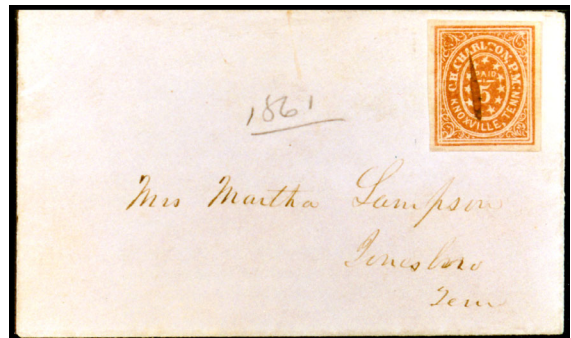 C.H. CHARLTON. P.M.
PAID
5
KNOXVILLE, TENN.
1861
Mrs Martha Lampson
Jonesboro
Tenn